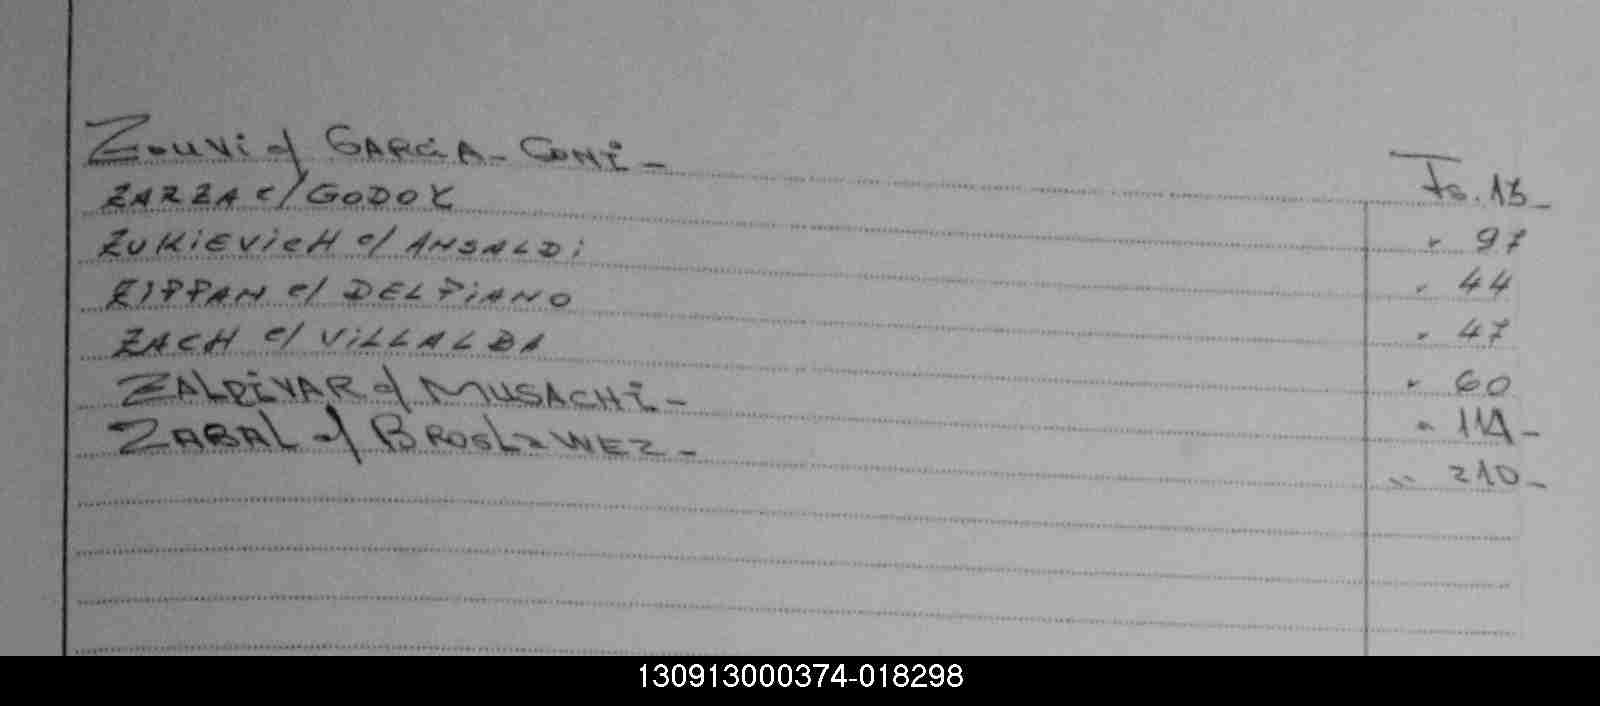 Zouvi c/ GARCIA - GOÑI - Fs. 13 -
ZARZA c/ GODOY " 97
ZUKIEVICH c/ ANSALDI " 44
ZIPPAN c/ DELPIANO " 47
ZACH c/ VILLALBA " 60
ZALDIVAR c/ MUSACHI - " 114 -
ZABAL c/ -  " 210 -
130913000374-018298